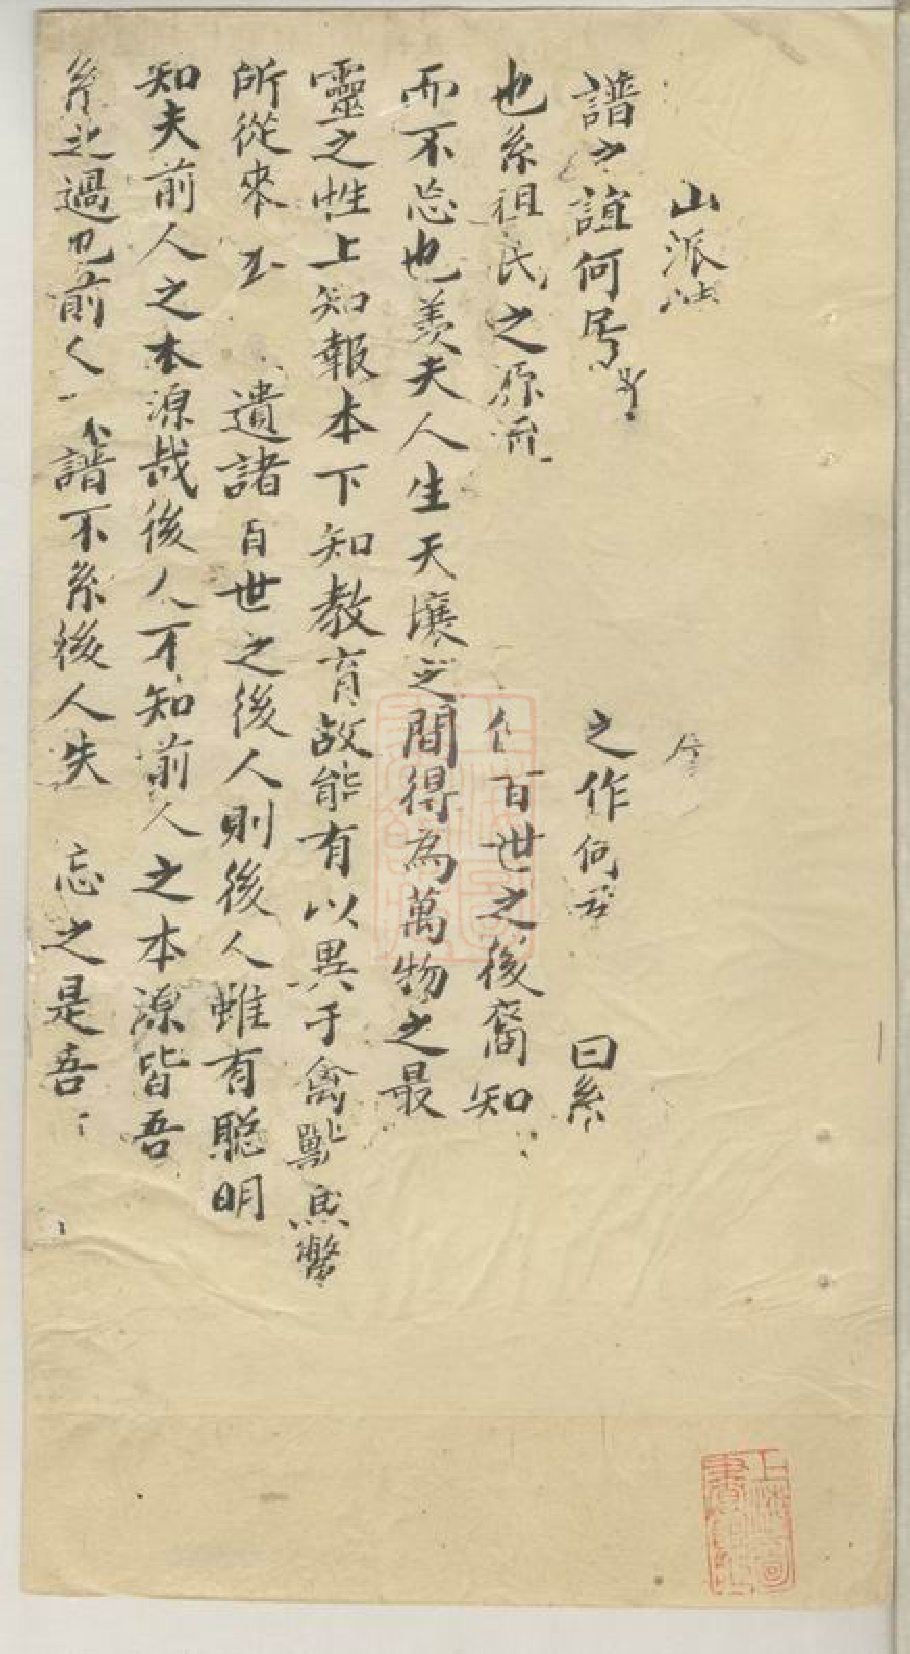 山派
譜之誼何昉 之作何 曰系
也系祖氏之源流 百世之後裔知
而不忘也羨夫人生天壤之間得為萬物之最
靈之性上知報本下知教育故能有以異于禽獸焉
所從來 遺諸百世之後人則後人雖有聰明
知夫前人之本源哉後人不知前人之本源皆吾
系之過也前人 譜不系後人失 忘之是吾
上海圖書館藏